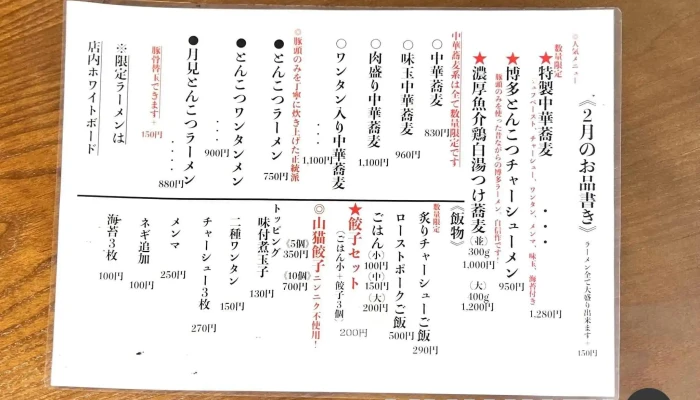 《2月のお品書き》
ラーメン全て大盛り出来ます+
150円
◎人気メニュー
数量限定
★特製中華蕎麦 ・・・ 1,280円
チャーシュー、ワンタン、メンマ、味玉、海苔付き
★博多とんこつチャーシューメン 950円
豚頭のみを使った昔ながらの博多ラーメン、自信作です!
★濃厚魚介鶏白湯つけ蕎麦 (並)300g 1,000円 (大)400g 1,200円
中華蕎麦系は全て数量限定です
○中華蕎麦 830円
○味玉中華蕎麦 960円
○肉盛り中華蕎麦 1,100円
○ワンタン入り中華蕎麦 ・・・ 1,100円
◎豚頭のみを丁寧に炊き上げた正統派
●とんこつラーメン 750円
●とんこつワンタンメン ・・・ 900円
●月見とんこつラーメン ・・・・ 880円
豚骨替玉できます+
150円
※限定ラーメンは
店内ホワイトボード
《飯物》
数量限定
炙りチャーシューご飯 290円
ローストポークご飯 500円
ごはん (小)100円 (中)150円 (大)200円
★餃子セット
(ごはん小+餃子3個) 200円
◎山猫餃子 ニンニク不使用!
(5個)350円 (10個)700円
トッピング
味付煮玉子 130円
二種ワンタン 150円
チャーシュー3枚 270円
メンマ 250円
ネギ追加 100円
海苔3枚 100円